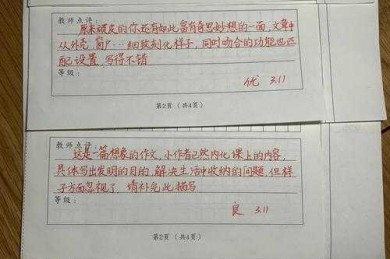 教师点评:
原来顽皮的你还有如此富有奇思妙想的一面,文章中
从外壳、窗户……细致刻化样子,同时吻合的功能也匹
配设置,写得不错
等级:
优 3.11
第2页 (共4页)
教师点评:
这是一篇想象的作文,小作者已然内化课上的内容,
具体写出发明的目的,解决生活中收纳的问题,但样
子方面忽视了,请补充此描写
等级:
良 3.11
第2页 (共4页)